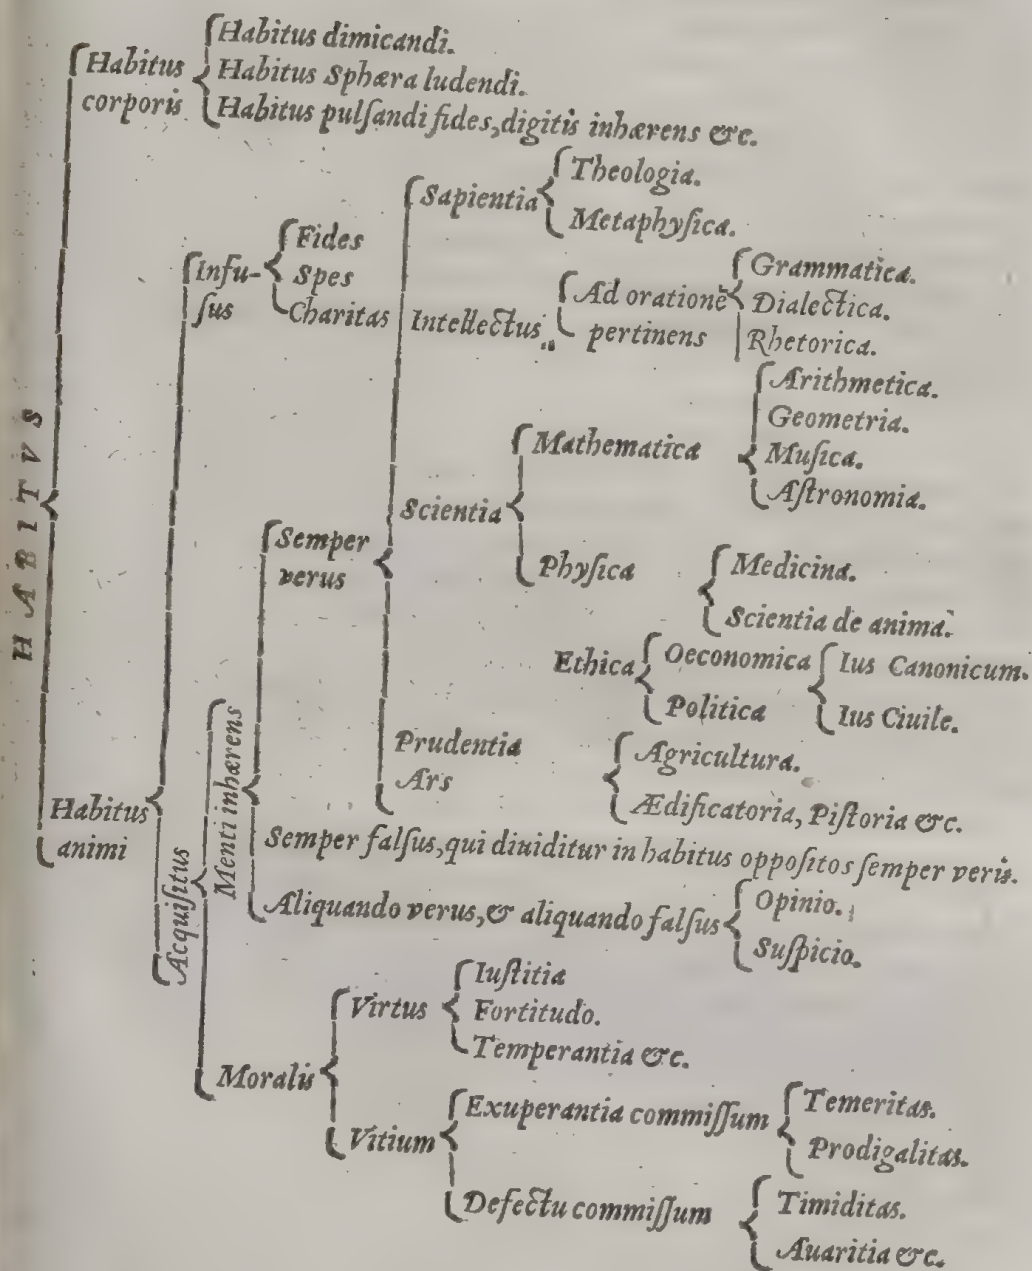 HABITVS
Habitus
corporis
Habitus dimicandi.
Habitus Sphæra ludendi.
Habitus pulſandi fides, digitis inhærens &c.
Habitus
animi
Infu-
ſus
Fides
Spes
Charitas
Acquiſitus
Menti inhærens
Semper
verus
Sapientia
Theologia.
Metaphyſica.
Intellectus.
Ad orationē
pertinens
Grammatica.
Dialectica.
Rhetorica.
Scientia
Mathematica
Arithmetica.
Geometria.
Muſica.
Aſtronomia.
Phyſica
Medicina.
Scientia de anima.
Ethica
Oeconomica
Politica
Ius Canonicum.
Ius Ciuile.
Prudentia
Ars
Agricultura.
Ædificatoria, Piſtoria &c.
Semper falſus, qui diuiditur in habitus oppoſitos ſemper veris.
Aliquando verus, & aliquando falſus
Opinio.
Suſpicio.
Moralis
Virtus
Iuſtitia
Fortitudo.
Temperantia &c.
Vitium
Exuperantia commiſſum
Temeritas.
Prodigalitas.
Defectu commiſſum
Timiditas.
Auaritia &c.